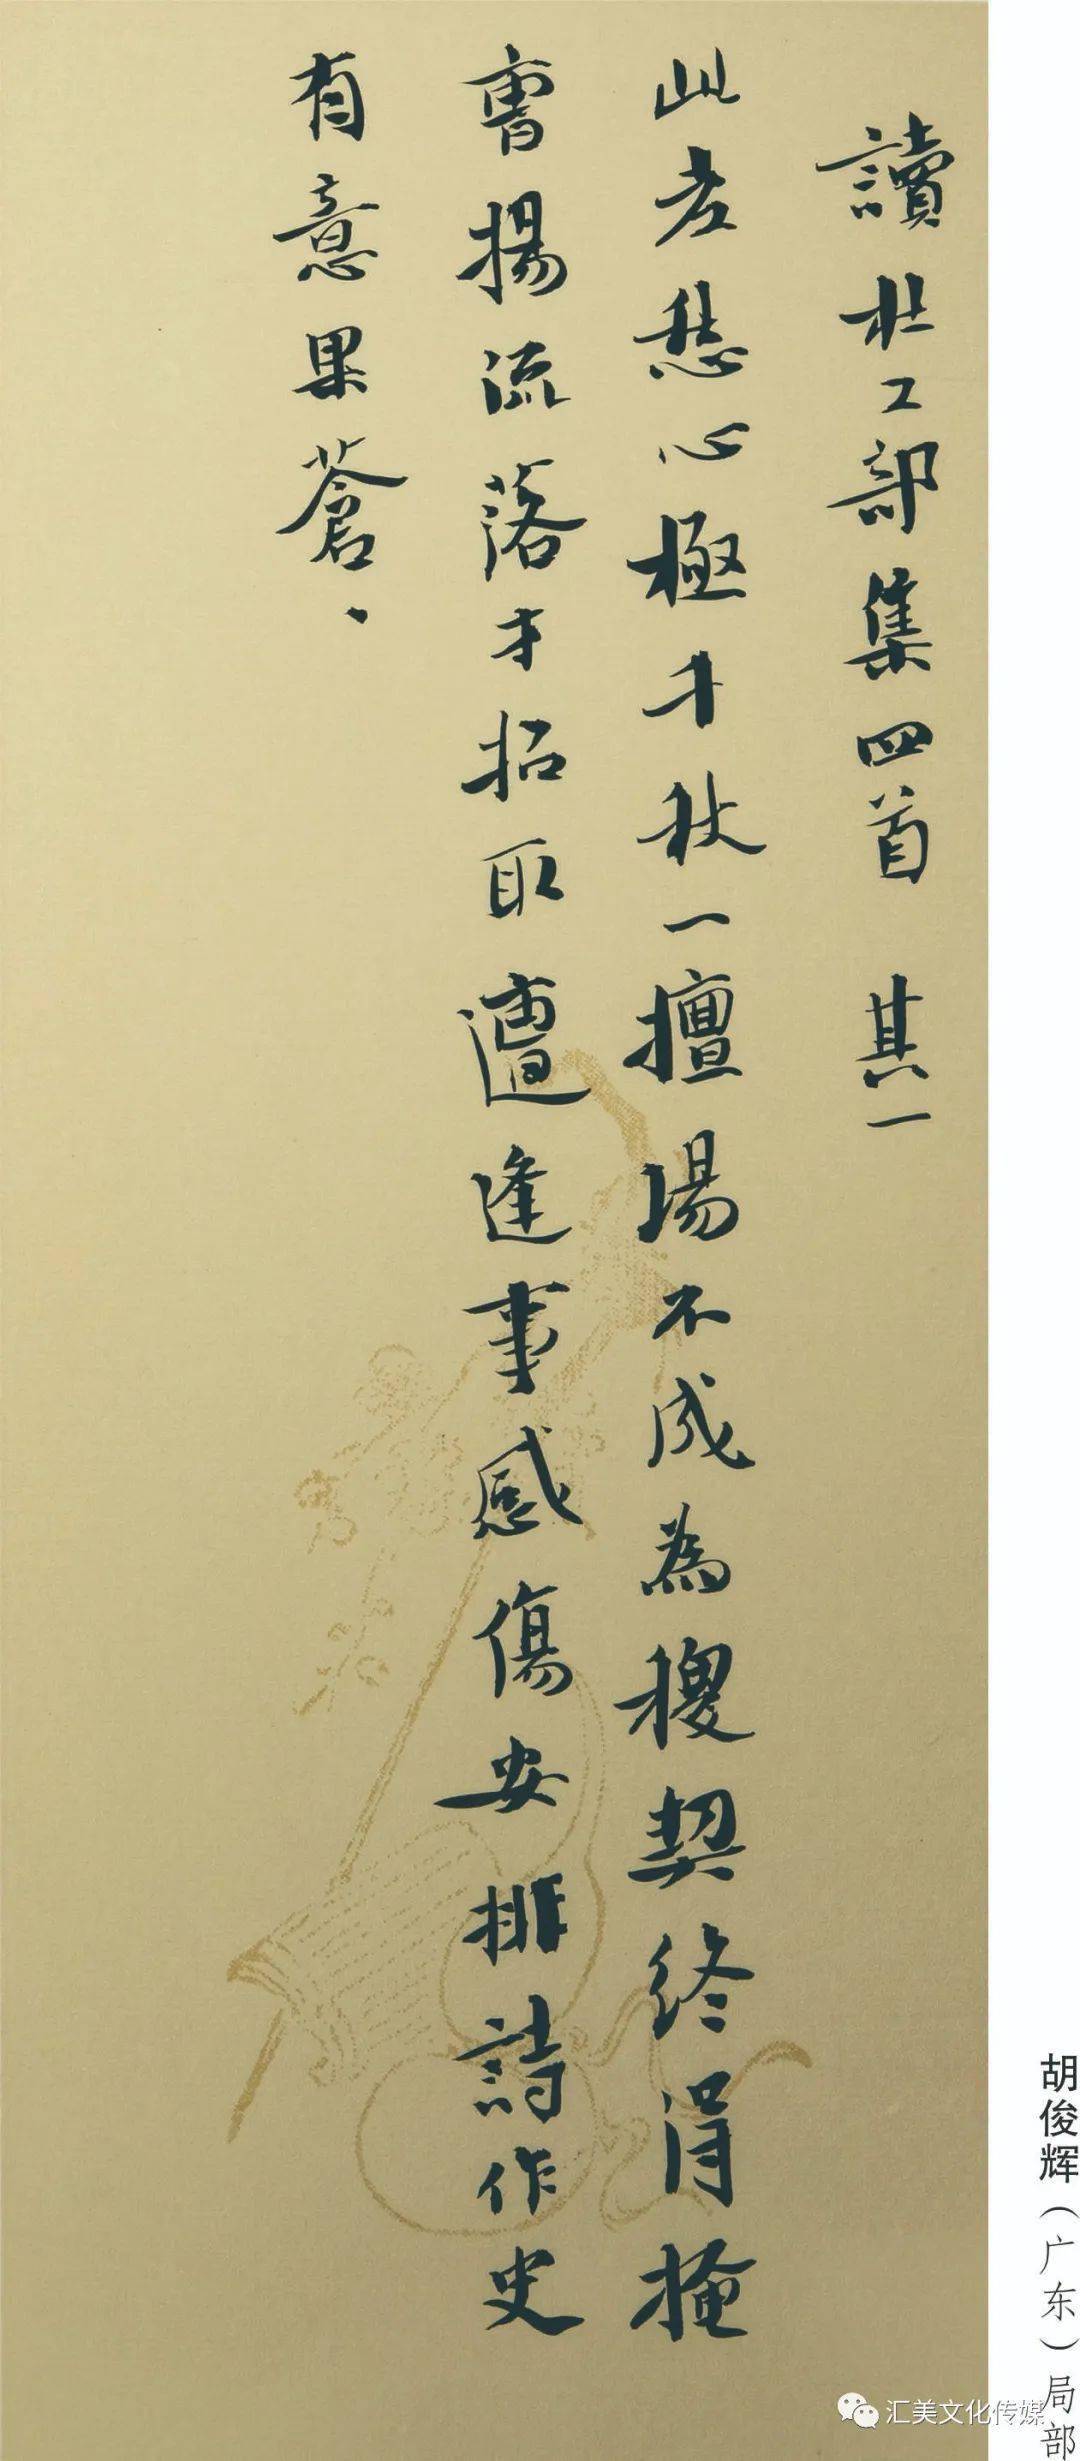 讀杜工部集四首 其一
此老愁心極千秋一擅場不成為稷契終得掩
曹揚流落才招取遭逢事感傷安排詩作史
有意果蒼、
胡俊辉（广东）局部
汇美文化传媒